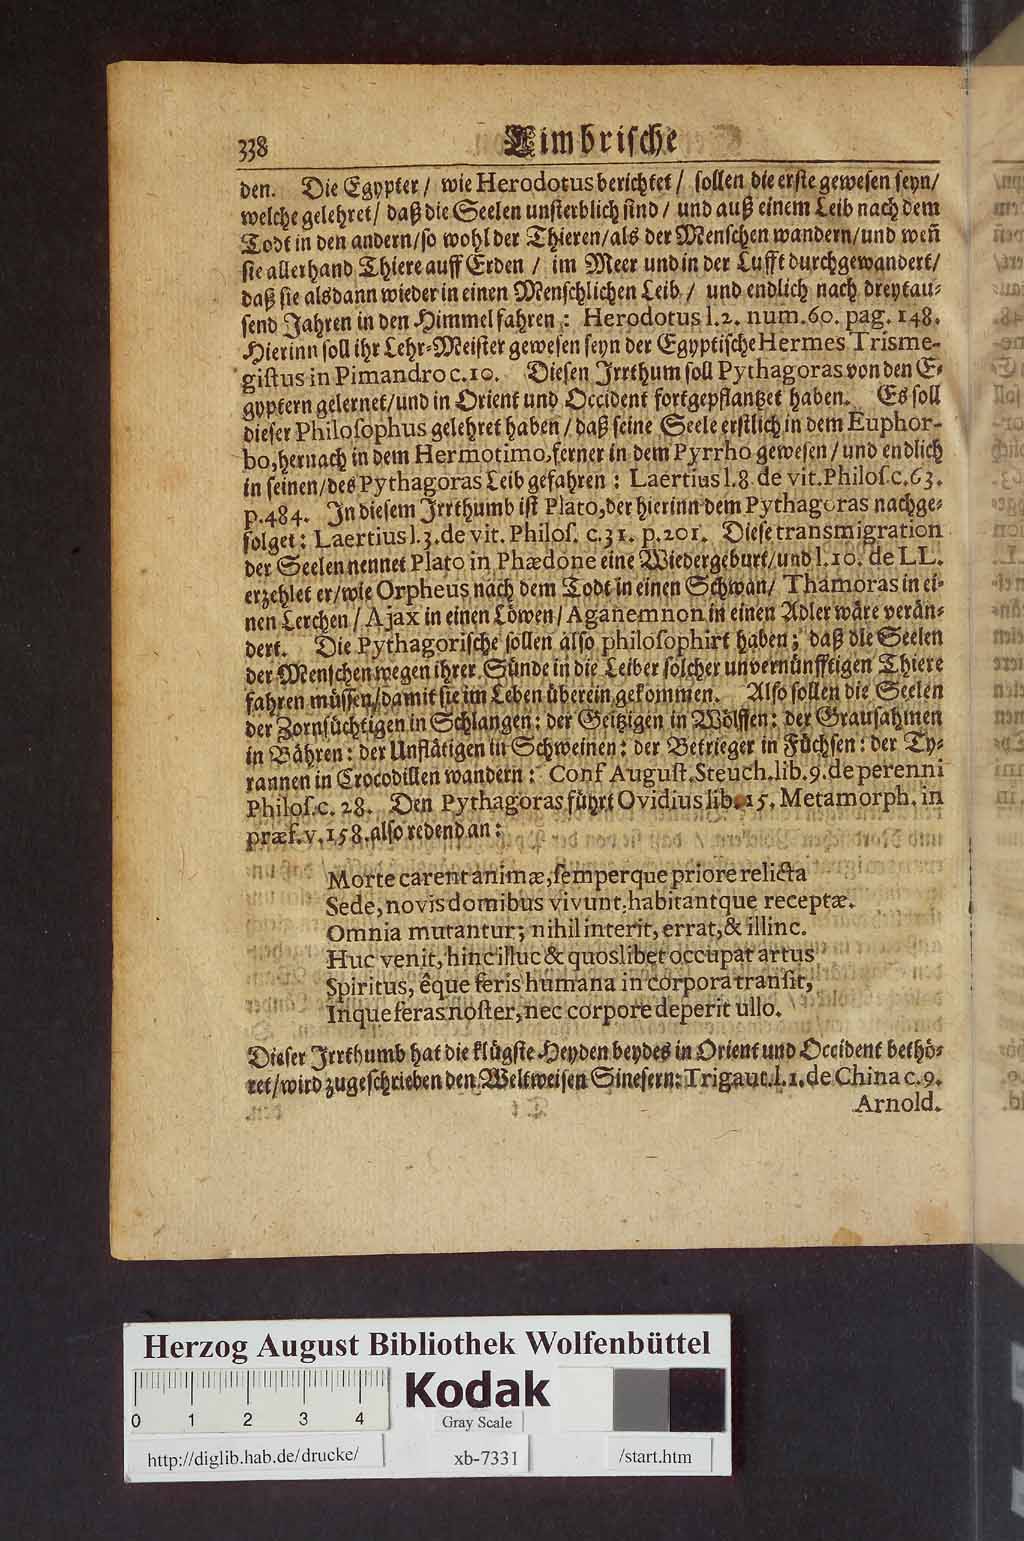 338 Cimbrische
den. Die Egypter / wie Herodotus berichtet / sollen die erste gewesen seyn /
welche gelehret / daß die Seelen unsterblich sind / und auß einem Leib nach dem
Todt in den andern / so wohl der Thieren / als der Menschen wandern / und weñ
sie allerhand Thiere auff Erden / im Meer und in der Lufft durchgewandert /
daß sie alsdann wieder in einen Menschlichen Leib / und endlich nach dreytau-
send Jahren in den Himmel fahren : Herodotus l. 2. num. 60. pag. 148.
Hierinn soll ihr Lehr-Meister gewesen seyn der Egyptische Hermes Trisme-
gistus in Pimandro c. 10. Diesen Irrthum soll Pythagoras von den E-
gyptern gelernet / und in Orient und Occident fortgepflantzet haben. Es soll
dieser Philosophus gelehret haben / daß seine Seele erstlich in dem Euphor-
bo, hernach in dem Hermotimo, ferner in dem Pyrrho gewesen / und endlich
in seinen / des Pythagoras Leib gefahren : Laertius l. 8. de vit. Philos. c. 63.
p. 484. In diesem Irrthumb ist Plato, der hierinn dem Pythagoras nachge-
folget : Laertius l. 3. de vit. Philos. c. 31. p. 201. Diese transmigration
der Seelen nennet Plato in Phædone eine Wiedergeburt / und l. 10. de LL.
erzehlet er / wie Orpheus nach dem Todt in einen Schwan / Thamoras in ei-
nen Lerchen / Ajax in einen Löwen / Aganemnon in einen Adler wäre verän-
dert. Die Pythagorische sollen also philosophirt haben ; daß die Seelen
der Menschen wegen ihrer Sünde in die Leiber solcher unvernünfftigen Thiere
fahren müssen / damit sie im Leben überein gekommen. Also sollen die Seelen
der Zornsüchtigen in Schlangen : der Geitzigen in Wölffen : der Grausahmen
in Bähren : der Unflätigen in Schweinen : der Betrieger in Füchsen : der Ty-
rannen in Crocodillen wandern : Conf August. Steuch. lib. 9. de perenni
Philos. c. 28. Den Pythagoras führt Ovidius lib. 15. Metamorph. in
præf. v. 158. also redend an :
Morte carent animæ, semperque priore relicta
Sede, novis domibus vivunt, habitantque receptæ.
Omnia mutantur; nihil interit, errat, & illinc.
Huc venit, hinc illuc & quoslibet occupat artus
Spiritus, êque feris humana in corpora transit,
Inque feras noster, nec corpore deperit ullo.
Dieser Irrthumb hat die klügste Heyden beydes in Orient und Occident bethö-
ret / wird zugeschrieben den Weltweisen Sinesern : Trigaut. l. 1. de China c. 9.
Arnold.
Herzog August Bibliothek Wolfenbüttel
Kodak
0 1 2 3 4
Gray Scale
http://diglib.hab.de/drucke/ xb-7331 /start.htm